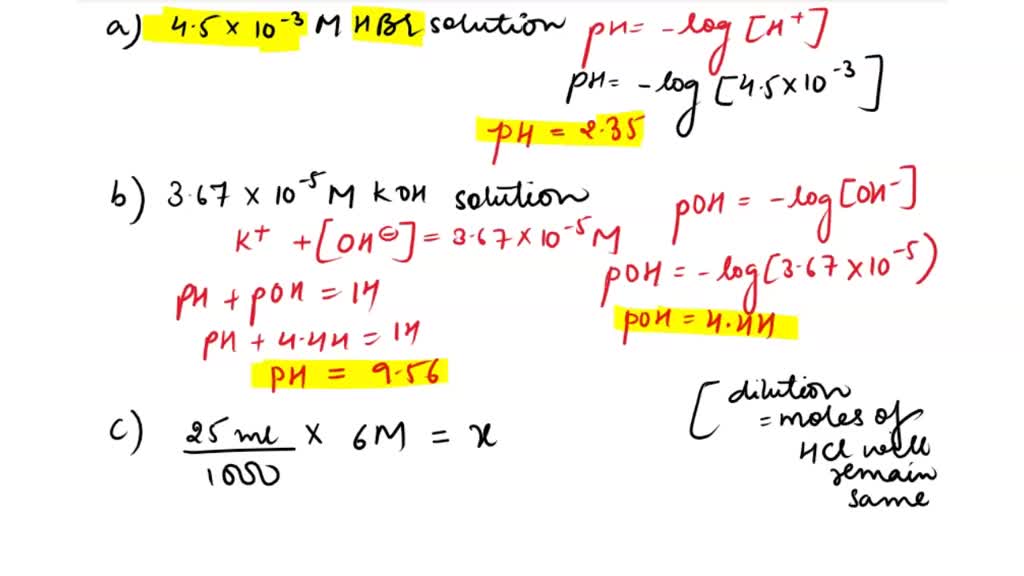 a) 4.5 × 10⁻³ M HBr solution pH = -log [H⁺]
pH = -log [4.5×10⁻³]
pH = 2.35
b) 3.67 × 10⁻⁵ M KOH solution
pOH = -log [OH⁻]
K⁺ + [OH⊖] = 3.67 × 10⁻⁵ M
pOH = -log (3.67 × 10⁻⁵)
pOH = 4.44
pH + pOH = 14
pH + 4.44 = 14
pH = 9.56
c) 25 ml / 1000 × 6M = x
[ dilution
= moles of
HCl will
remain
same